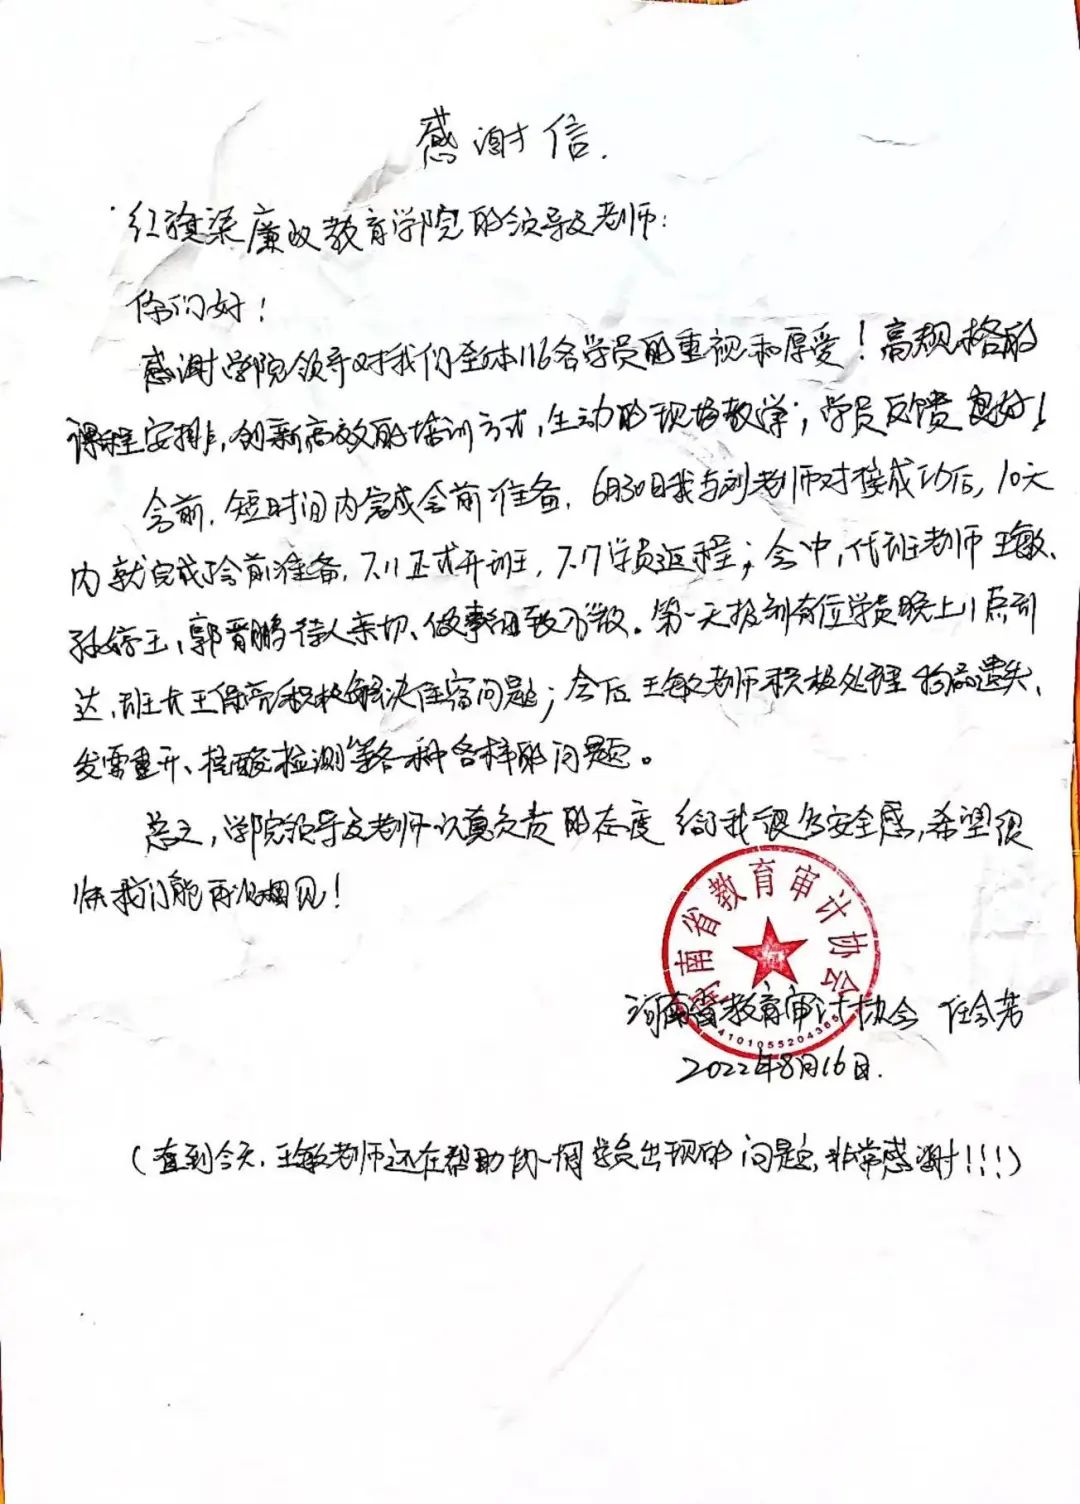 感谢信.
红旗渠廉政教育学院的领导及老师:
你们好!
感谢学院领导对我们全体116名学员的重视和厚爱!高规格的
课程安排,创新高效的培训方式,生动的现场教学;学员反馈良好!
会前,短时间内完成会前准备,6月30日我与刘老师对接成功后,10天
内就完成了会前准备,7.11正式开班,7.17学员返程;会中,代班老师王敏、
孙婷玉、郭晋鹏待人亲切、做事细致。第一天报到有位学员晚上11点到
达,班长王保亮积极解决住宿问题;会后王敏老师积极处理物品遗失、
发票重开、核酸检测等各种各样的问题。
总之,学院领导及老师认真负责的态度给了我很多安全感,希望很
快我们能再次相见!
河南省教育审计协会
4101055204365
河南省教育审计协会 任会芳
2022年8月16日.
(直到今天,王敏老师还在帮助协调学员出现的问题,非常感谢!!!)